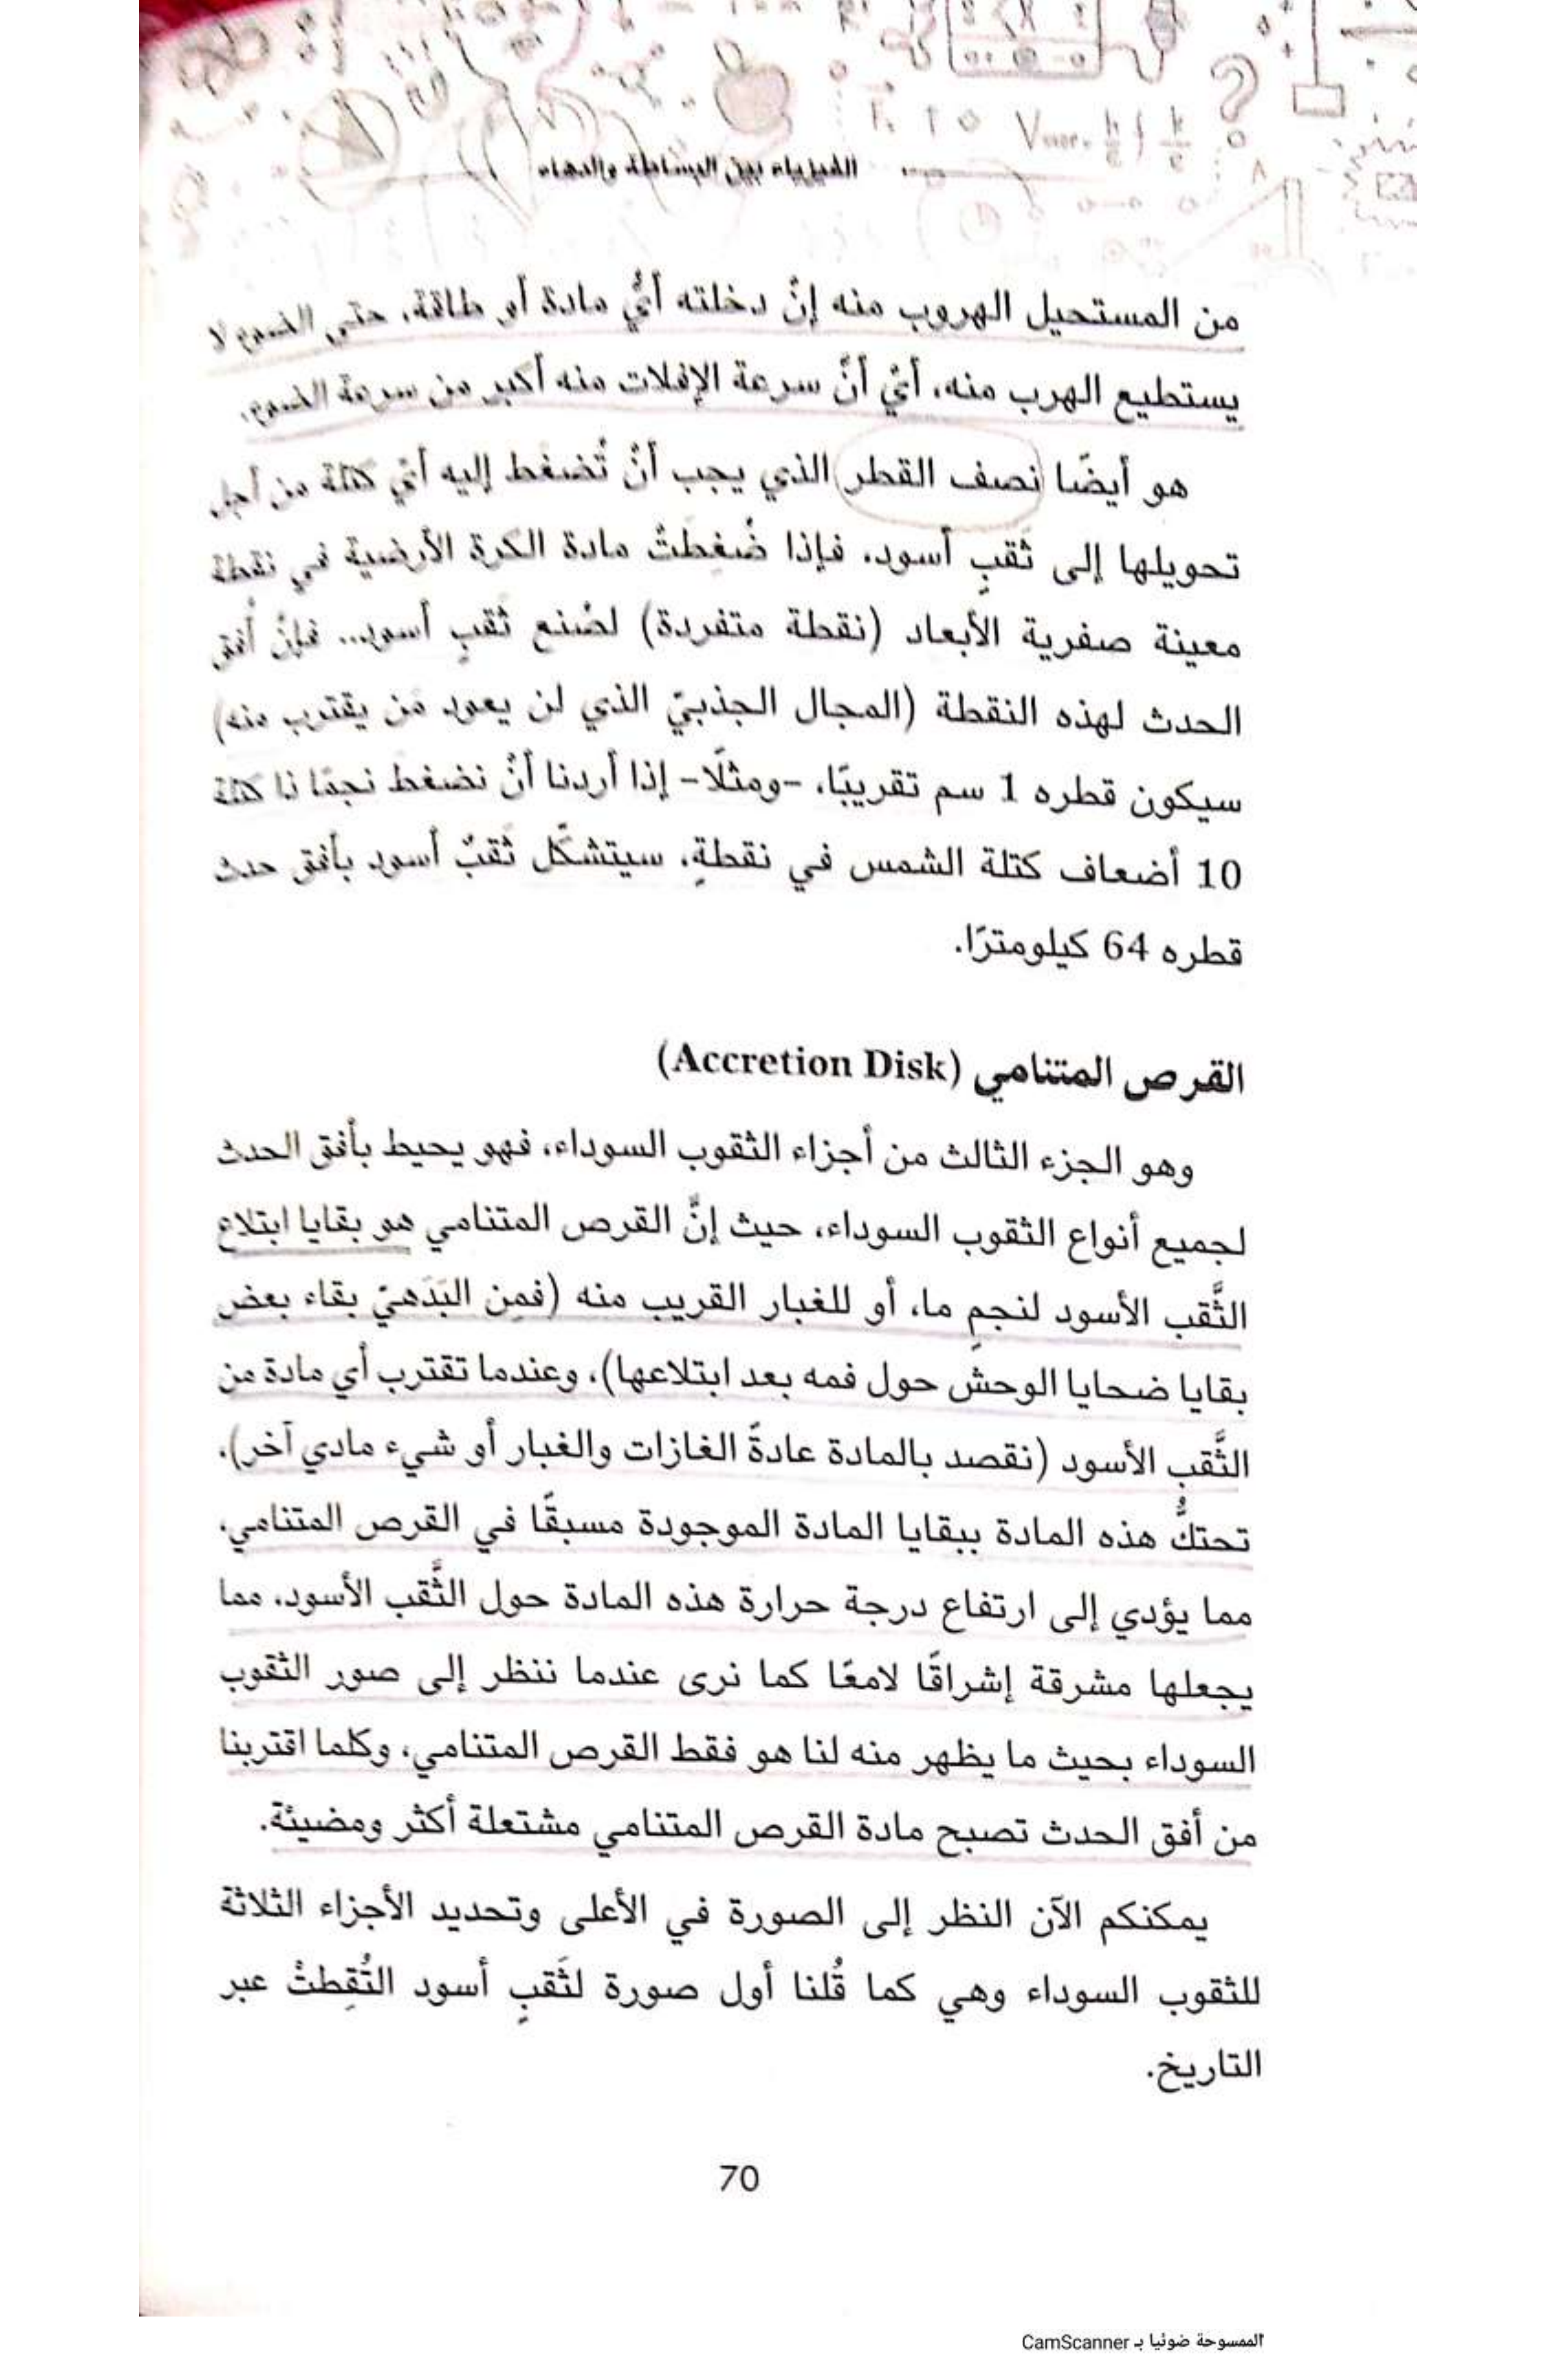 الفيزياء بين البساطة والدهاء
من المستحيل الهروب منه إنْ دخلته أيُّ مادة أو طاقة، حتى الضوء لا
يستطيع الهرب منه، أيْ أنَّ سرعة الإفلات منه أكبر من سرعة الضوء.
هو أيضًا نصف القطر الذي يجب أنْ تُضغط إليه أيّ كتلة من أجل
تحويلها إلى ثَقبٍ أسود، فإذا ضُغِطتْ مادة الكرة الأرضية في نقطة
معينة صفرية الأبعاد (نقطة متفردة) لصُنع ثَقبٍ أسود... فإنَّ أُفق
الحدث لهذه النقطة (المجال الجذبيّ الذي لن يعود مَن يقترب منه)
سيكون قطره 1 سم تقريبًا، -ومثلًا- إذا أردنا أنْ نضغط نجمًا ذا كتلة
10 أضعاف كتلة الشمس في نقطةٍ، سيتشكَّل ثَقبٌ أسود بأفق حدث
قطره 64 كيلومترًا.
القرص المتنامي (Accretion Disk)
وهو الجزء الثالث من أجزاء الثقوب السوداء، فهو يحيط بأفق الحدث
لجميع أنواع الثقوب السوداء، حيث إنَّ القرص المتنامي هو بقايا ابتلاع
الثَّقب الأسود لنجمٍ ما، أو للغبار القريب منه (فمِن البَدَهيّ بقاء بعض
بقايا ضحايا الوحش حول فمه بعد ابتلاعها)، وعندما تقترب أي مادة من
الثَّقب الأسود (نقصد بالمادة عادةً الغازات والغبار أو شيء مادي آخر)،
تحتكُّ هذه المادة ببقايا المادة الموجودة مسبقًا في القرص المتنامي،
مما يؤدي إلى ارتفاع درجة حرارة هذه المادة حول الثَّقب الأسود، مما
يجعلها مشرقة إشراقًا لامعًا كما نرى عندما ننظر إلى صور الثقوب
السوداء بحيث ما يظهر منه لنا هو فقط القرص المتنامي، وكلما اقتربنا
من أفق الحدث تصبح مادة القرص المتنامي مشتعلة أكثر ومضيئة.
يمكنكم الآن النظر إلى الصورة في الأعلى وتحديد الأجزاء الثلاثة
للثقوب السوداء وهي كما قُلنا أول صورة لثَقبٍ أسود التُقِطتْ عبر
التاريخ.
70
الممسوحة ضوئيا بـ CamScanner